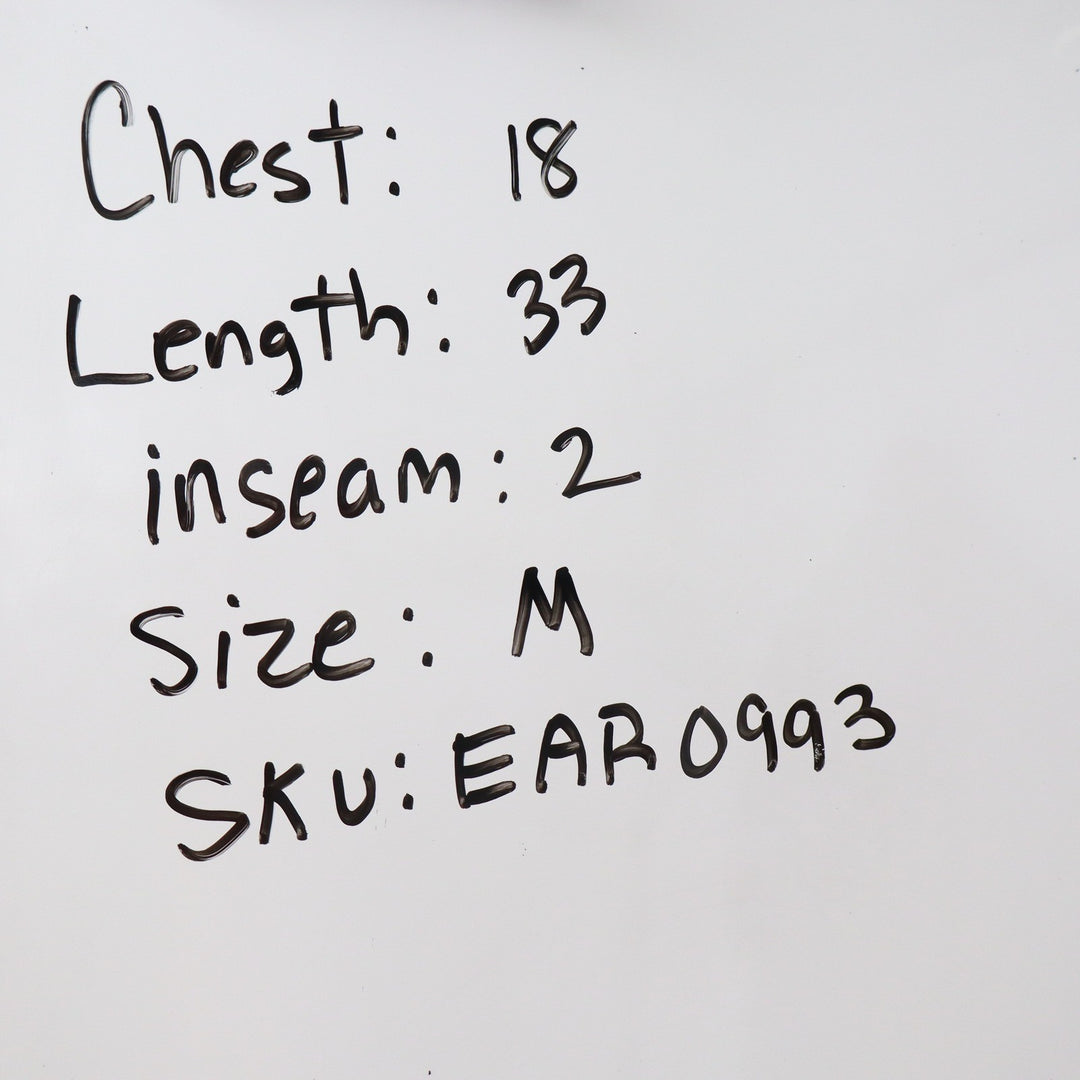 Chest: 18
Length: 33
inseam: 2
Size: M
SKU: EAR0993